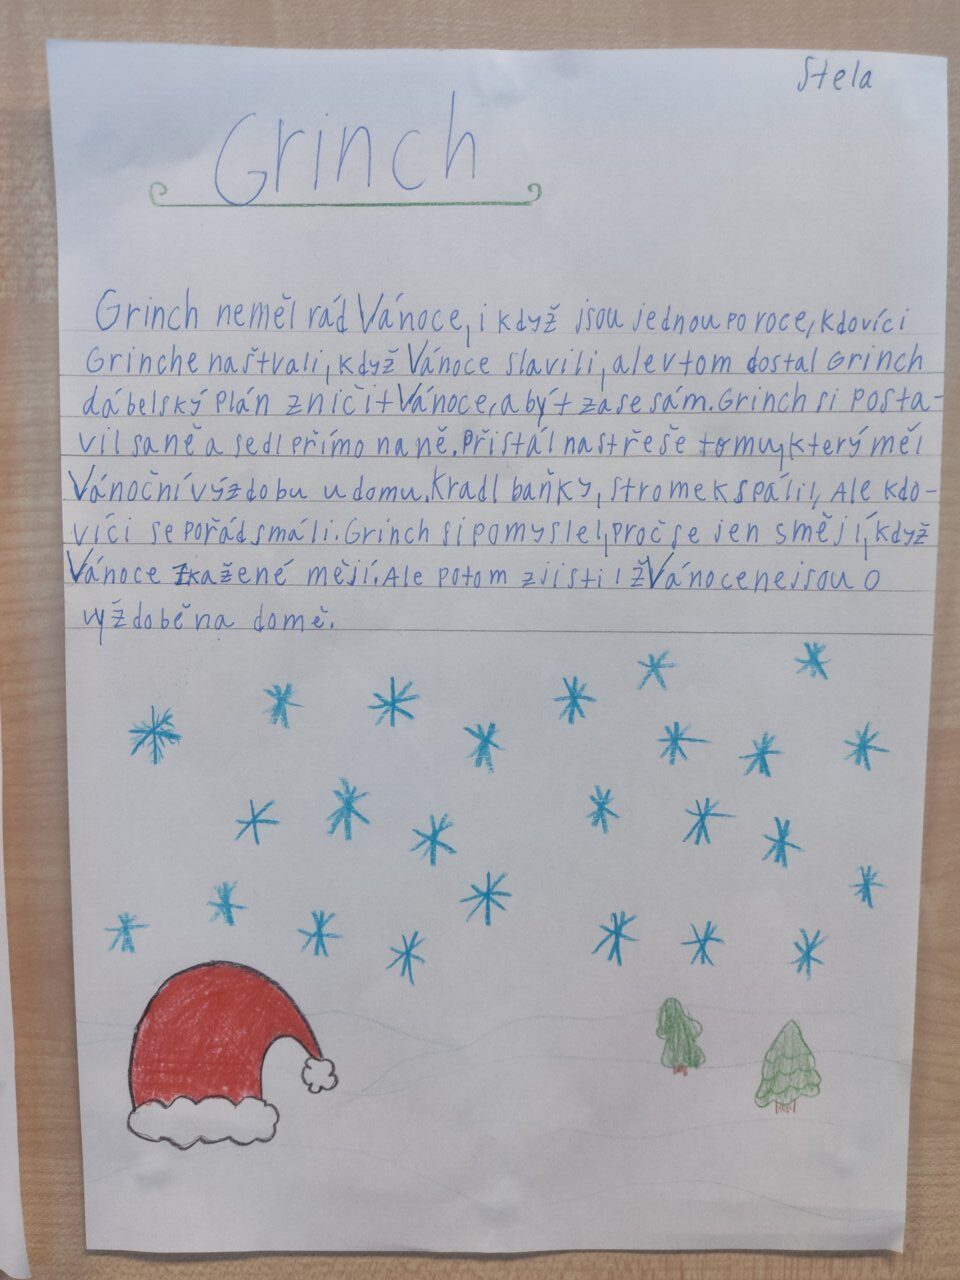 Stela
Grinch
Grinch neměl rád Vánoce, i když jsou jednou po roce, kdovíci
Grinche naštvali, když Vánoce slavili, ale v tom dostal Grinch
dábelský Plán zničit Vánoce, a být zase sám. Grinch si posta-
vil saně a sedl přímo na ně. Přistál na střeše tomu, který měl
Vánoční výzdobu u domu. Kradl baňky, stromek spálil, Ale kdo-
víci se pořád smáli. Grinch si pomyslel, proč se jen smějí, když
Vánoce zkažené mějí. Ale potom zjistil ž Vánoce nejsou o
výždobě na domě.